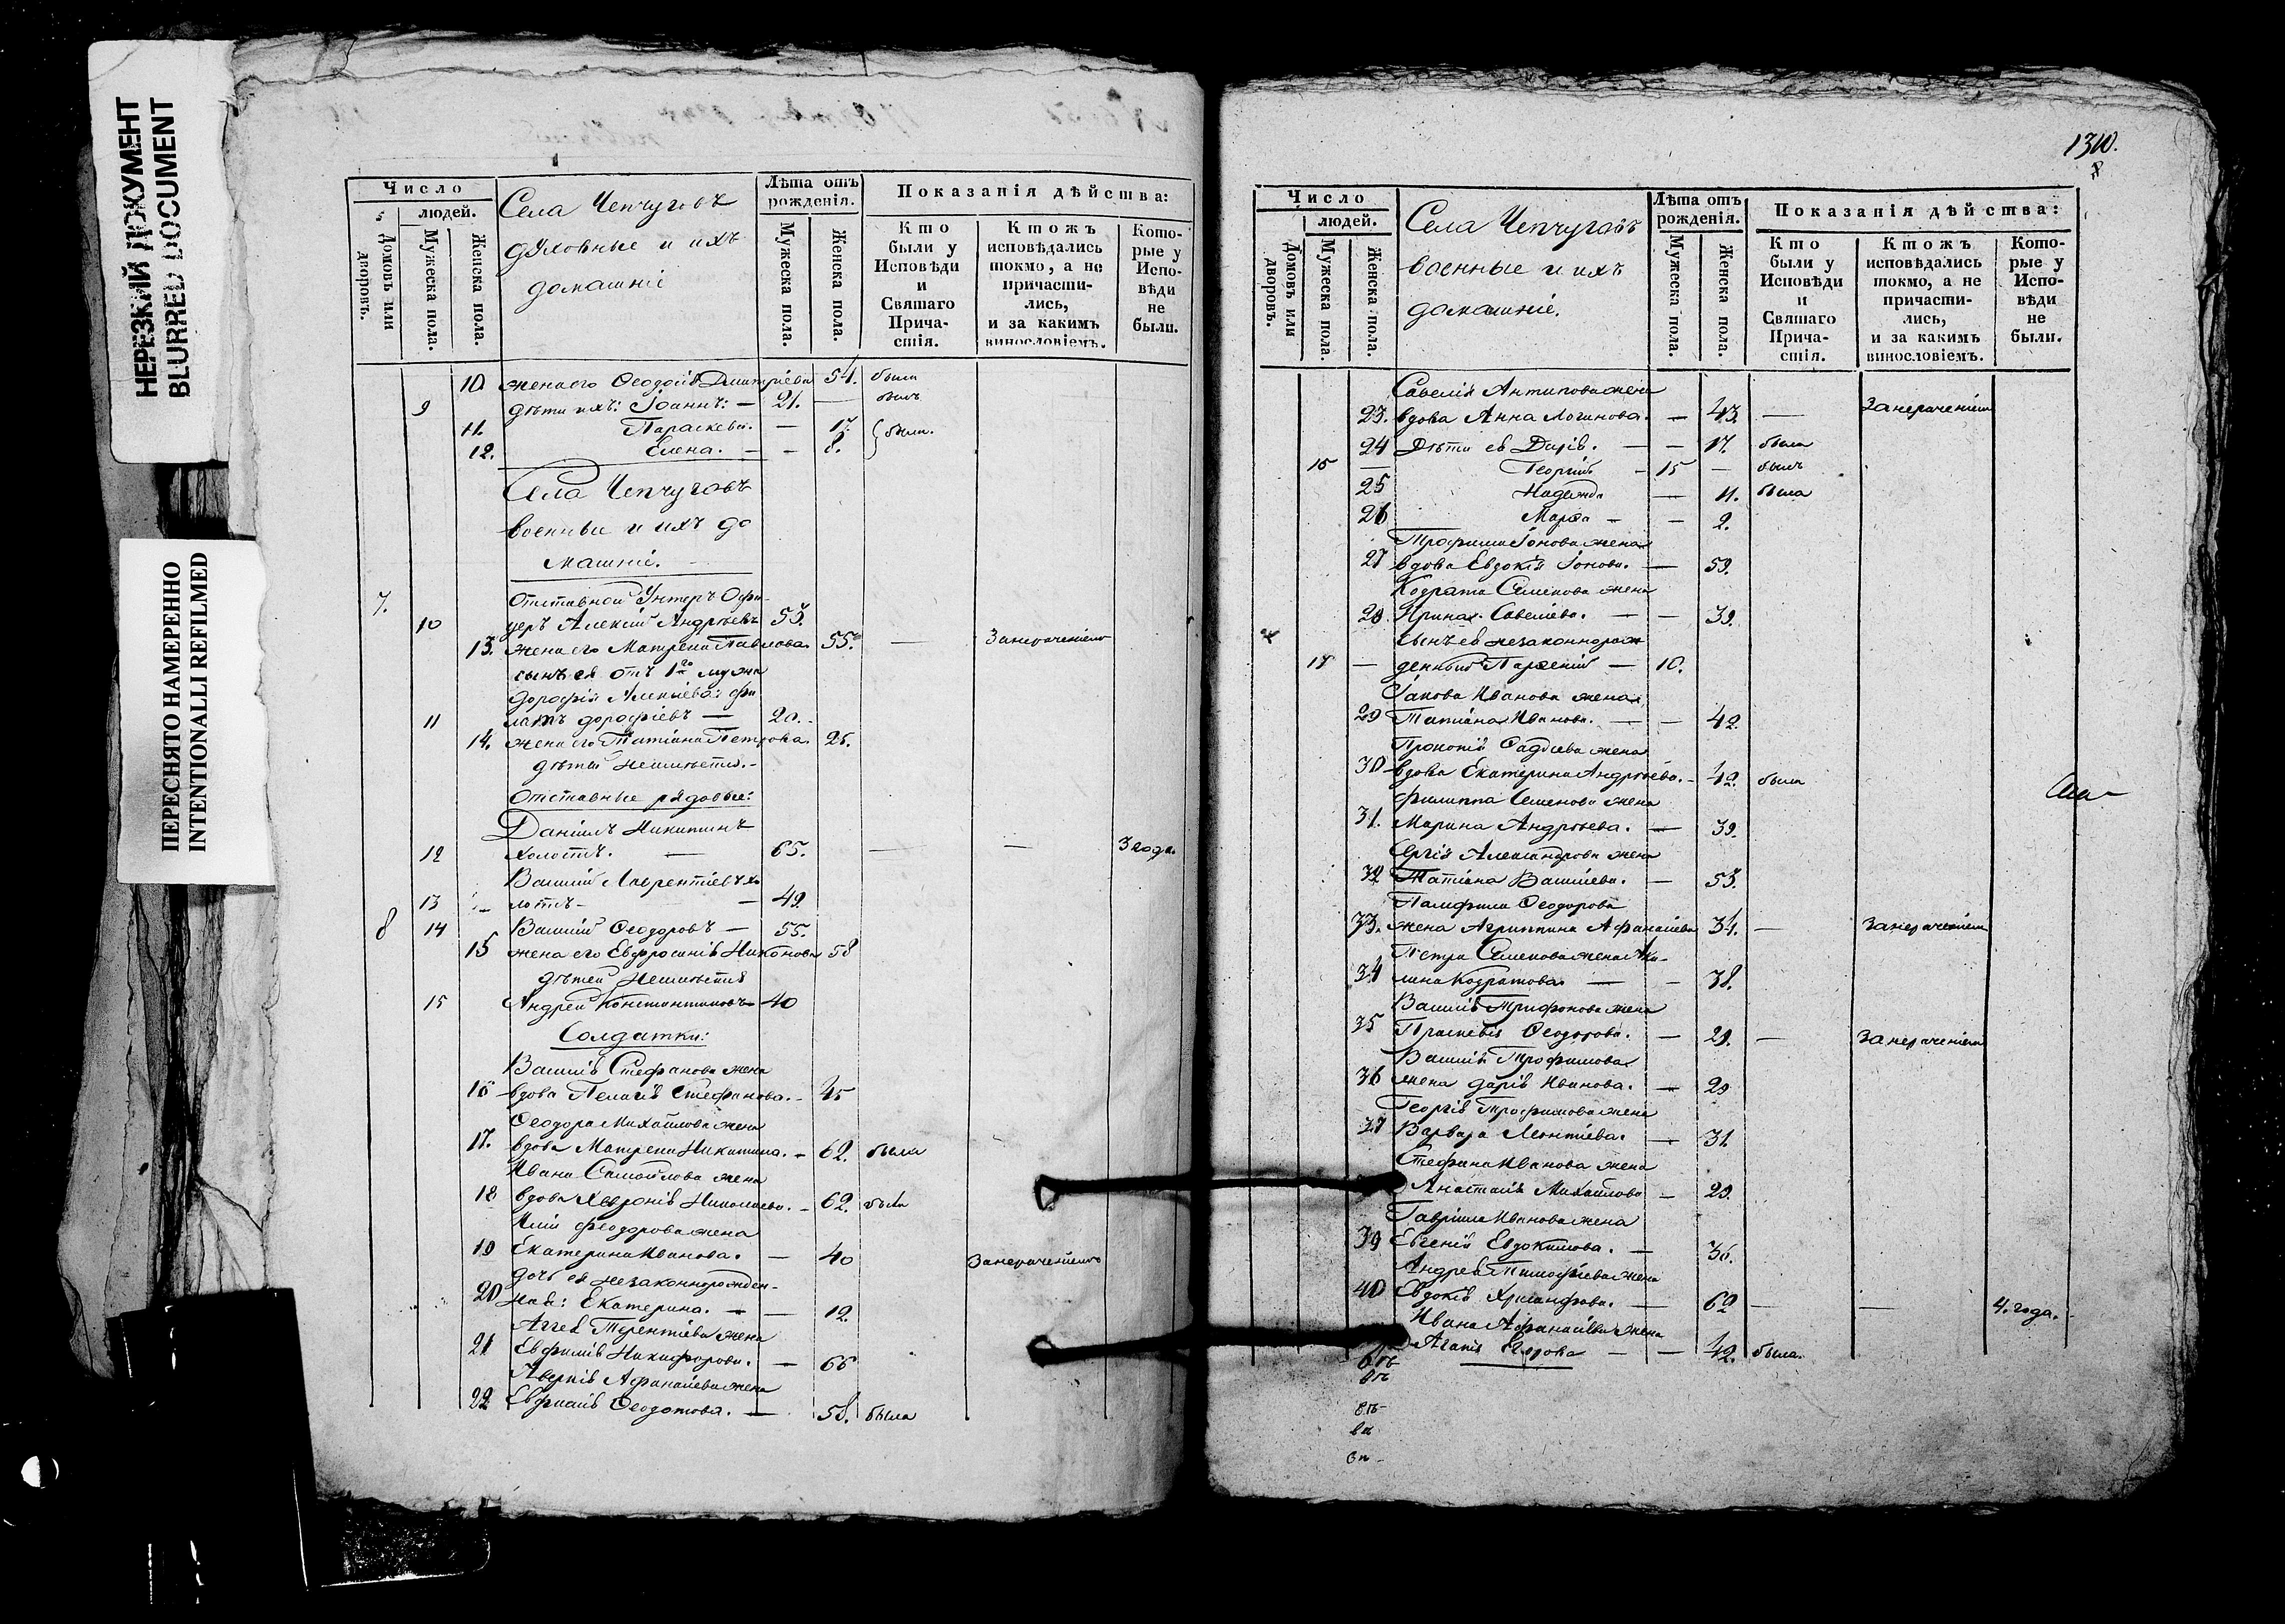 НЕРЕЗКИЙ ДОКУМЕНТ
BLURRED DOCUMENT
ПЕРЕСНЯТО НАМЕРЕННО
INTENTIONALLI REFILMED
Число
людей.
Домовъ или дворовъ.
Мужеска пола.
Женска пола.
Села Чепчуговъ
духовные и ихъ
домашніе
Лѣта отъ рожденія.
Мужеска пола.
Женска пола.
Показанія дѣйства:
Кто были у Исповѣди и Святаго Прича-стія.
Ктожъ исповѣдались токмо, а не причасти-лись, и за какимъ винословіемъ.
Кото-рые у Испо-вѣди не были.
10 жена его Ѳеодосія Дмитріева 54. была
9 дѣти ихъ: Іоаннъ: — 21. — былъ
11. Параскева. — 17. были.
12. Елена. — 8.
Села Чепчуговъ
военные и ихъ до
машніе.
7. Отставной Унтеръ Офи-
10 церъ Алексій Андреевъ 55.
13. жена его Матрена Павлова. 55. — За нераченіемъ
сынъ ея отъ 1го мужа
Дорофея Алексіева: Фи
11 латъ Дорофіевъ — 20.
14. жена его Татіана Петрова. 25.
дѣтей неимѣетъ.
Отставные рядовые:
Даніилъ Никитинъ
12 холостъ. — 65. — — 3 года.
Василій Лаврентіевъ хо
13 лостъ — 49.
8 14 Василій Ѳеодоровъ — 55.
15 жена его Евфросинія Никонова 58
дѣтей Неимѣетъ
15 Андрей Константиновъ 40
Солдатки:
Василія Стефанова жена
16 вдова Пелагія Стефанова. 45
Ѳеодора Михайлова жена
17. вдова Матрена Никитина. 62. была
Ивана Самойлова жена
18 вдова Хевронія Николаева. 62. была
Иліи Феодорова жена
19 Екатерина Иванова. — 40 За нераченіемъ
дочь ея незаконнорожден-
20 ная: Екатерина. — 12.
Аггея Терентіева жена
21 Евфимія Никифорова. — 66
Аверкія Афанасіева жена
22 Ѳеодотова. — 58. была
1310.
Число
людей.
Домовъ или дворовъ.
Мужеска пола.
Женска пола.
Села Чепчуговъ
военные и ихъ
домашніе.
Лѣта отъ рожденія.
Мужеска пола.
Женска пола.
Показанія дѣйства:
Кто были у Исповѣди и Святаго Прича-стія.
Ктожъ исповѣдались токмо, а не причасти-лись, и за какимъ винословіемъ.
Кото-рые у Испо-вѣди не были.
Савелія Антипова жена
23. вдова Анна Логинова. — 43. — За нераченіемъ
24 Дѣти ея Дарія. — 17. была
16 — Георгій — 15 — былъ
25 Надежда — 11. была
26 Марѳа — 2.
Трофима Іонова жена
27 вдова Евдокія Іонова. — 59.
Кодрата Семенова жена
28 Савеліева. — 39.
сынъ ея незаконнорож
17 — денный Парѳеній — 10.
Іакова Иванова жена
29 Татіана Иванова. — 42.
Прокопія жена
30 вдова Екатерина Андреева. 42. была
Филиппа Семенова жена
31. Марина Андреева. — 39.
Сергія Александрова жена
32 Татіана Василіева. — 53.
Памфила Ѳеодорова
33. жена Агриппина Афанасіева 34. — За нераченіемъ
Петра Семенова жена Аки-
34 лина Кодратова. — 38.
Василія Трифонова жена
35 Праскевія Ѳеодорова. — 29. — За нераченіемъ
Василія Трофимова
36 жена Дарія Иванова. — 29
Георгія Трофимова жена
37 Варвара Леонтіева. — 31.
Стефана Иванова жена
Анастасія Михайлова — 29.
Гавріила Иванова жена
39 Евгенія Евдокимова. — 36.
Андрея Тимофіева жена
40 Евдокія Хрисанфова. — 62 — — 4. года.
Ивана Афанасіева жена
Агапія Егорова — 42. была.